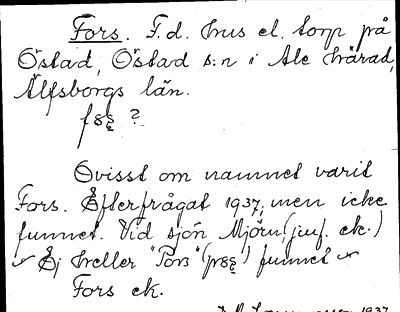 Fors. F.d. hus el. torp på
Östad, Östad s:n i Ale härad,
Älfsborgs län.
fo̤s̤ ?
Ovisst om namnet varit
Fors. Efterfrågat 1937, men icke
funnet. Vid sjön Mjörn (jmf. ek.)
Ej heller "Pors" (po̤s̤) funnet
Fors ek.
1937